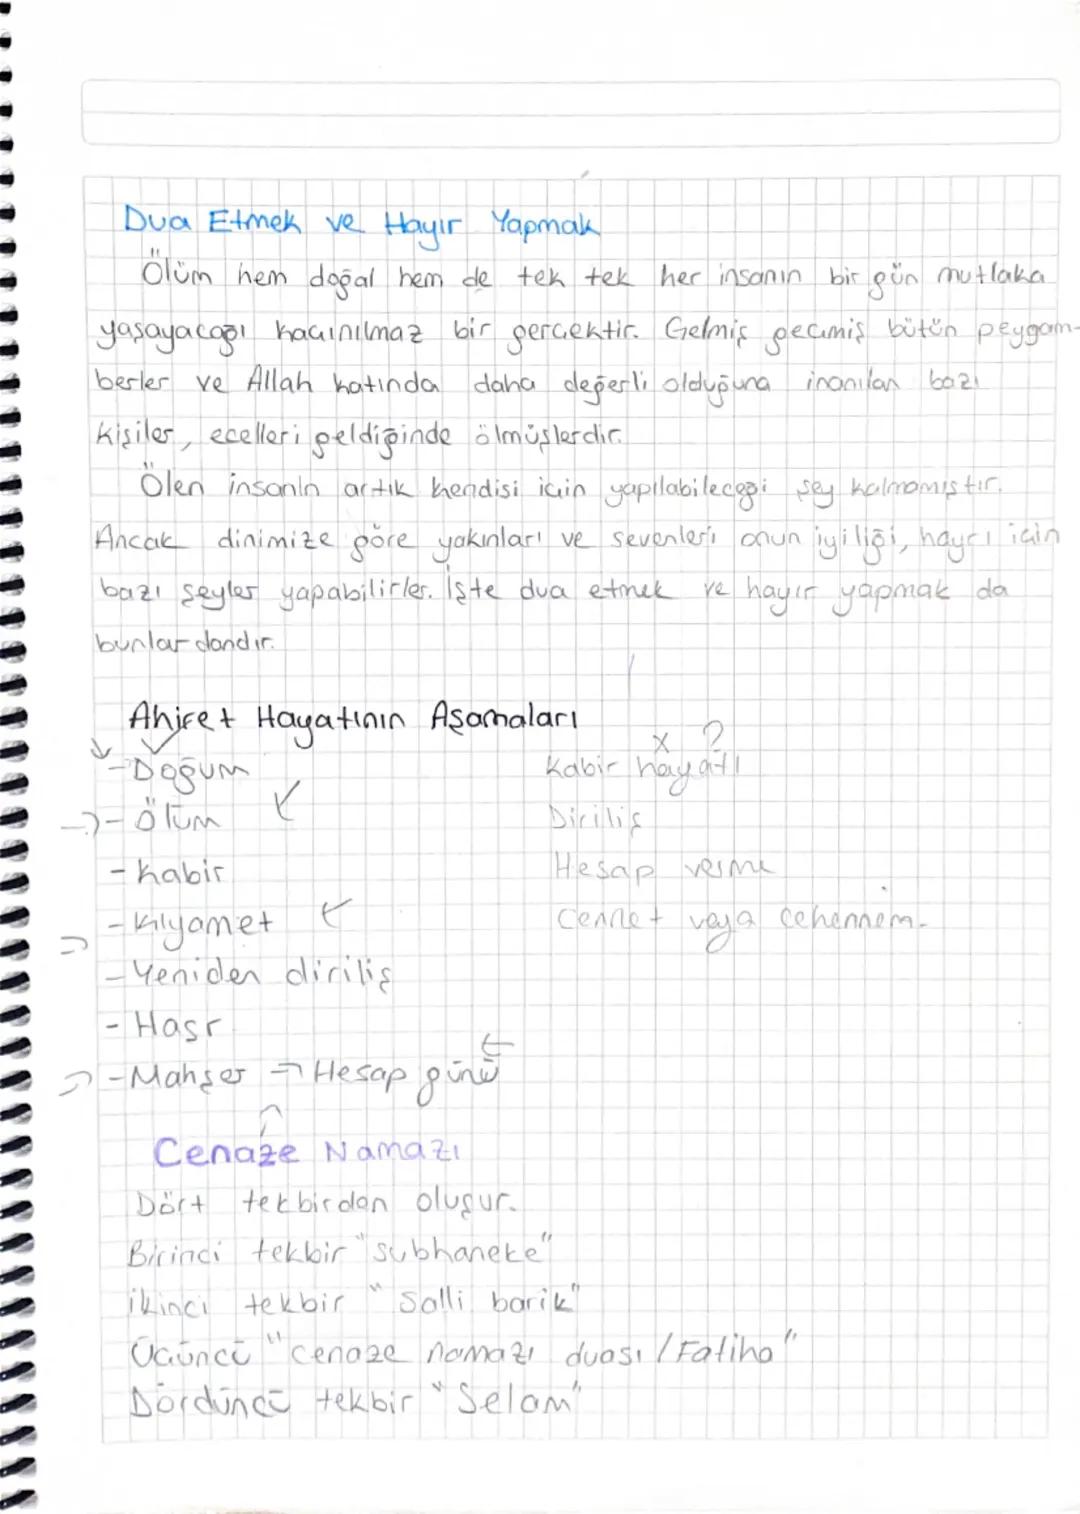 Dua Etmek ve Hayır Yapmak
Ölüm hem doğal hem de tek tek her insanın bir gün mutlaka
yaşayacağı kaçınılmaz bir gerçektir. Gelmiş geçmiş bütün peygam-
berler ve Allah katında daha değerli olduğuna inanılan bazı
kişiler, ecelleri geldiğinde ölmüşlerdir.
Ölen insanın artık kendisi için yapılabileceği şey kalmamıştır.
Ancak dinimize göre yakınları ve sevenleri onun iyiliği, hayrı için
bazı şeyler yapabilirler. İşte dua etmek ve hayır yapmak da
bunlardandır.
Ahiret Hayatının Aşamaları
- Doğum
- Ölüm
- Kabir
- Kıyamet
- Yeniden diriliş
- Haşr
- Mahşer => Hesap günü
x ?
Kabir hayatı
Diriliş
Hesap verme
Cennet veya cehennem.
Cenaze Namazı
Dört tekbirden oluşur.
Birinci tekbir "subhaneke"
ikinci tekbir "Salli barik"
Üçüncü "cenaze namazı duası / Fatiha"
Dördüncü tekbir "Selam"